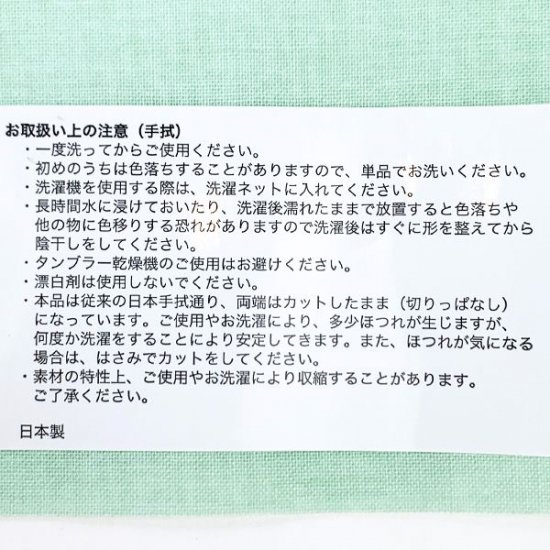 お取扱い上の注意（手拭）
・一度洗ってからご使用ください。
・初めのうちは色落ちすることがありますので、単品でお洗いください。
・洗濯機を使用する際は、洗濯ネットに入れてください。
・長時間水に浸けておいたり、洗濯後濡れたままで放置すると色落ちや
他の物に色移りする恐れがありますので洗濯後はすぐに形を整えてから
陰干しをしてください。
・タンブラー乾燥機のご使用はお避けください。
・漂白剤は使用しないでください。
・本品は従来の日本手拭通り、両端はカットしたまま（切りっぱなし）
になっています。ご使用やお洗濯により、多少ほつれが生じますが、
何度か洗濯をすることにより安定してきます。また、ほつれが気になる
場合は、はさみでカットをしてください。
・素材の特性上、ご使用やお洗濯により収縮することがあります。
ご了承ください。
日本製